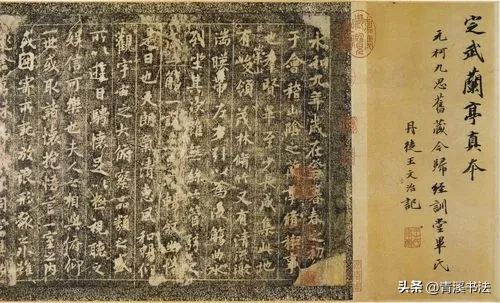 定武蘭亭真本
元柯九思舊藏今歸經訓堂畢氏
丹徒王文治記
永和九年歲在癸丑暮春之初會
于會稽山陰之蘭亭脩稧事
也羣賢畢至少長咸集此地
有峻領茂林脩竹又有清流激
湍暎帶左右引以為流觴曲水
列坐其次雖無絲竹管弦之
盛一觴一詠亦足以暢敘幽情
是日也天朗氣清惠風和暢仰
觀宇宙之大俯察品類之盛
所以遊目騁懷足以極視聽之
娛信可樂也夫人之相與俯仰
一世或取諸懷抱悟言一室之內
或因寄所託放浪形骸之外雖
头条 @青溪书法